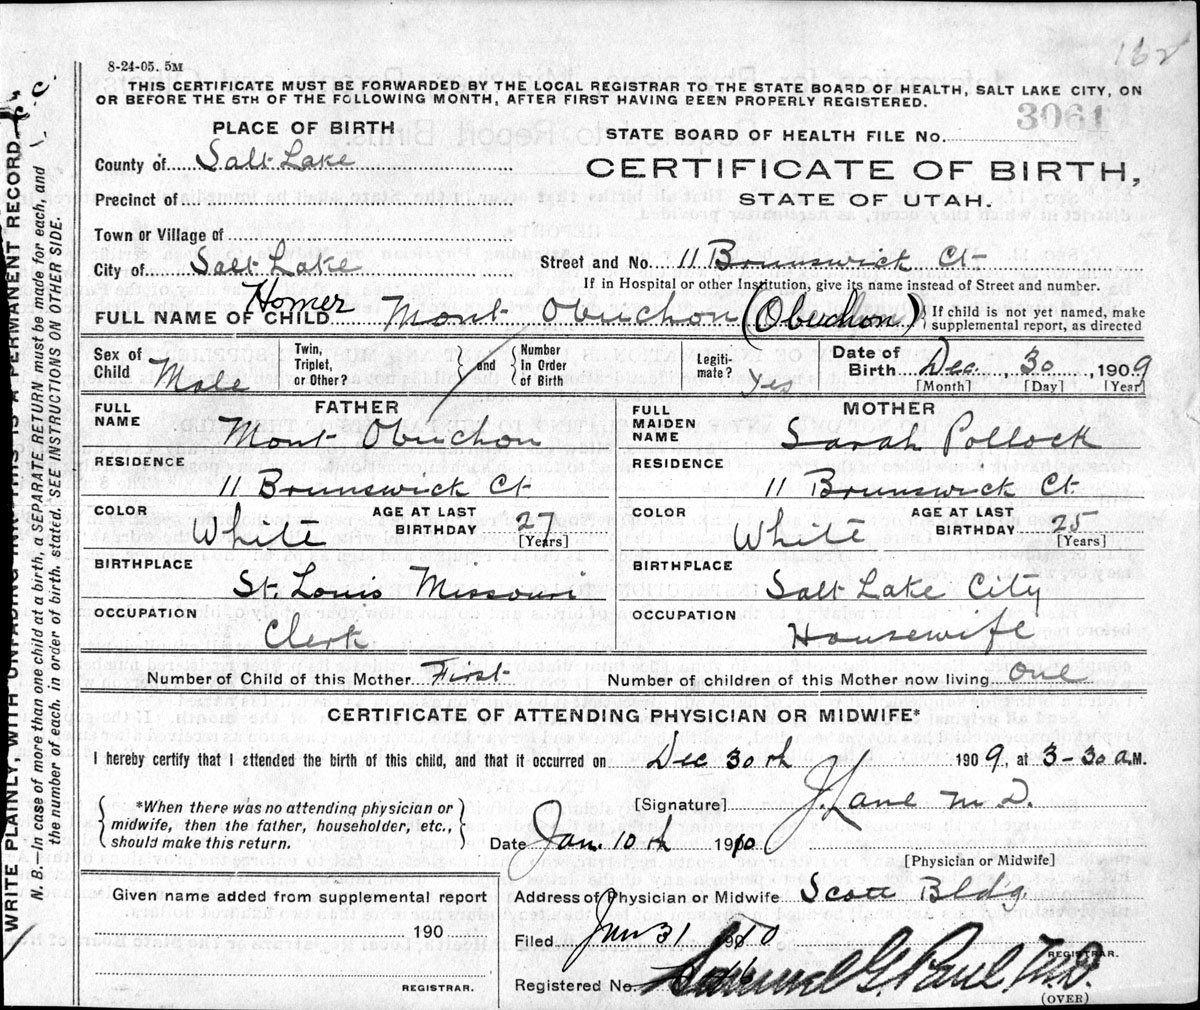 162
8-24-05. 5M
THIS CERTIFICATE MUST BE FORWARDED BY THE LOCAL REGISTRAR TO THE STATE BOARD OF HEALTH, SALT LAKE CITY, ON
OR BEFORE THE 5TH OF THE FOLLOWING MONTH, AFTER FIRST HAVING BEEN PROPERLY REGISTERED.
PLACE OF BIRTH
STATE BOARD OF HEALTH FILE No. 3061
County of Salt Lake
CERTIFICATE OF BIRTH,
Precinct of
STATE OF UTAH.
Town or Village of
City of Salt Lake
Street and No. 11 Brunswick Ct
If in Hospital or other Institution, give its name instead of Street and number.
FULL NAME OF CHILD Homer Mont Obuchon (Obuchon) { If child is not yet named, make
supplemental report, as directed
Sex of Child Male
Twin, Triplet, or Other?
and { Number in Order of Birth
Legiti-mate? Yes
Date of Birth Dec. 30, 1909
[Month] [Day] [Year]
FATHER
FULL NAME Mont Obuchon
MOTHER
FULL MAIDEN NAME Sarah Pollock
RESIDENCE
11 Brunswick Ct
RESIDENCE
11 Brunswick Ct.
COLOR White
AGE AT LAST BIRTHDAY 27
[Years]
COLOR White
AGE AT LAST BIRTHDAY 25
[Years]
BIRTHPLACE
St. Louis Missouri
BIRTHPLACE
Salt Lake City
OCCUPATION
Clerk
OCCUPATION
Housewife
Number of Child of this Mother First
Number of children of this Mother now living One
CERTIFICATE OF ATTENDING PHYSICIAN OR MIDWIFE*
I hereby certify that I attended the birth of this child, and that it occurred on Dec 30th 1909, at 3-30 a.M.
{ *When there was no attending physician or
midwife, then the father, householder, etc.,
should make this return. }
[Signature] J. Lane M.D.
Date Jan. 10th 1910
[Physician or Midwife]
Given name added from supplemental report
190
REGISTRAR.
Address of Physician or Midwife Scott Bldg.
Filed Jan 31 1910
Registered No. Samuel G. Paul M.D.
REGISTRAR.
(OVER)
WRITE PLAINLY, WITH UNFADING INK—THIS IS A PERMANENT RECORD
N. B.—In case of more than one child at a birth, a SEPARATE RETURN must be made for each, and
the number of each, in order of birth, stated. SEE INSTRUCTIONS ON OTHER SIDE.